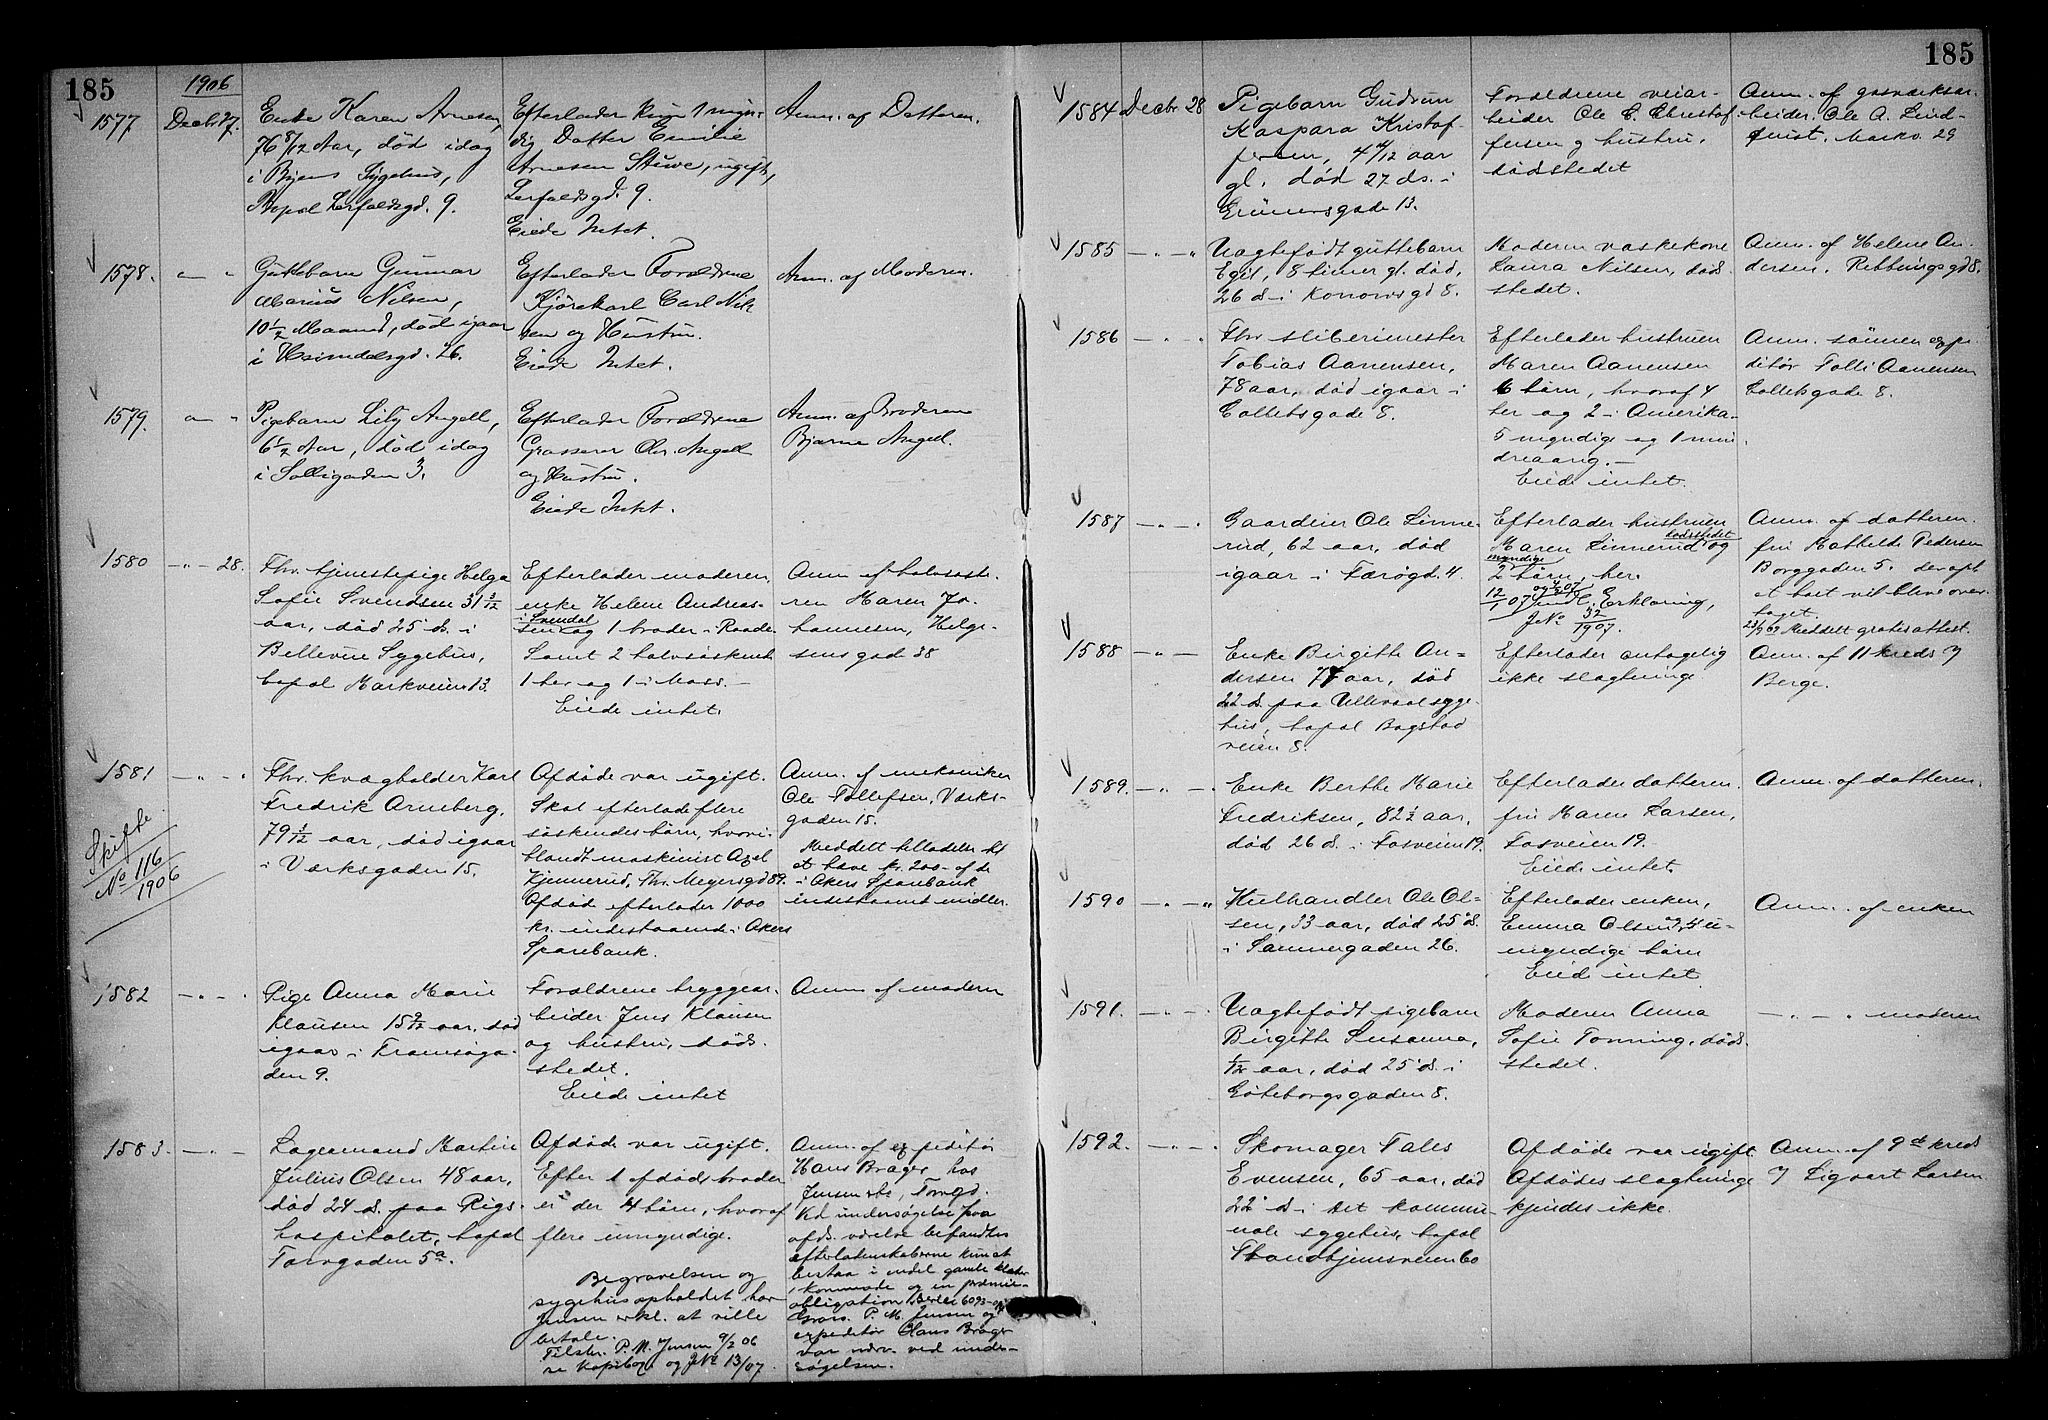 185
1906
1577
Decbr 27.
Enke Karen Arnesen,
76 8/12 Aar, død idag
i Byens Sygehus,
Bopæl Lerfaldsgd. 9.
Efterlader kun 1 myn-
dig Datter Emilie
Arnesen Stuwe, ugift,
Lerfaldsgd. 9.
Eiede Intet.
Anm. af Datteren.
1578.
Guttebarn Gunnar
Marius Nilsen,
10 1/2 Maaned, død igaar
i Heimdalsgd. 26.
Efterlader Forældrene
Kjørekarl Carl Nil-
sen og Hustru.
Eiede Intet.
Anm. af Moderen.
1579.
Pigebarn Lily Angell,
6 1/2 Aar, død idag
i Solligaden 3.
Efterlader Forældrene
Grosserer Chr. Angell
og Hustru.
Eiede Intet.
Anm. af Broderen
Bjarne Angell.
1580
- " - 28.
Fhv. tjenestepige Helga
Sofie Svendsen 31 3/12
aar, død 25 ds. i
Bellevue Sygehus,
bopæl Markveien 13.
Efterlader moderen,
enke Helene Andreas-
i Svendal
sen og 1 broder i Raade.
Samt 2 halvsøskend
1 her og 1 i Moss. -
Eiede intet.
Anm af halvsøste-
ren Maren Jo-
hannesen, Helge-
sens gade 38
1581
- " -
Skifte
No 116
1906
Fhv. kvægholder Karl
Fredrik Arneberg,
79 1/12 aar, død igaar
i Værksgaden 15.
Afdøde var ugift.
Skal efterlade flere
søskendes børn, hvori-
blandt maskinist Axel
Kjennerud, Thv. Meyersgd 89.
Afdøde efterlader 1000
kr. indestaaende i Akers
Sparebank.
Anm. af mekaniker
Ole Tollefsen, Værks-
gaden 15.
Meddelt tilladelse til
at hæve kr. 200- af de
i Akers Sparebank
indestaaend midler.
1582
- " -
Pige Anna Marie
Klausen 15 9/12 aar, død
igaar i Framsøga-
den 9.
Forældrene bryggear-
beider Jens Klausen
og hustru, døds-
stedet.
Eiede intet
Anm af moderen
1583.
- " -
Lagermand Martin
Julius Olsen 48 aar,
død 24 ds. paa Rigs-
hospitalet, bopæl
Torvgaden 5a.
Afdøde var ugift.
Efter 1 afdød broder
er der 4 børn, hvoraf
flere umyndige.
Begravelsen og
sygehusopholdet har
Jensen erkl. at ville
betale.
Tilstr. P. M. Jensen 9/2 06
se Kopibog og JNo 13/07.
Anm. af expeditør
Hans Brager hos
Jensen &c, Torvgd.
Ved undersøgelse paa
afd. værelse befandtes
efterladenskaberne kun at
bestaa i endel gamle klæder
, kommode og en præmie-
obligation Serie 6093-
Gross. P. M. Jensen og
expeditør Hans Brager
var nærv. ved under-
søgelsen.
185
1584
Decbr. 28
Pigebarn Gudrun
Kaspara Kristof-
fersen, 4 4/12 aar
gl. død 27 ds. i
Grünersgade 13.
Forældrene veiar-
beider Ole C. Christof-
fersen og hustru,
dødsstedet
Anm. af gasværksar-
beider Ole A. Lind-
quist, Markv. 29
1585
- " - "
Uægtefødt guttebarn
Egil, 8 timer gl. død,
26 ds i Konowsgd 8.
Moderen vaskekone
Laura Nilsen, døds-
stedet.
Anm. af Helene An-
dersen. Rebbinggd 8.
1586
- " - "
Fhv. sliberimester
Tobias Aanensen,
78 aar, død igaar i
Colletsgade 8.
Efterlader hustruen
Maren Aanensen
6 børn, hvoraf 4
her og 2 i Amerika-
5 myndige og 1 min-
dreaarig. -
Eiede intet.
Anm. sønnen expe-
ditør Tolli Aanensen
Colletsgade 8.
1587
- " - "
Gaardeier Ole Linne-
rud, 62 aar, død
igaar i Færøgd. 4.
Efterlader hustruen
dødsstedet
Maren Linnerud og
myndige
2 børn, her.
12/1 07 Erklæring,
JNo 32/1907.
Anm. af datteren
fru Mathilde Pedersen
Borggaden 5. der opl.
at boet vil blive over-
taget.
Meddelt gratis attest.
1588
- " -
Enke Birgitte An-
dersen 77 aar, død
22 ds. paa Ullevaal syge-
hus, bopæl Bogstad
veien 8.
Efterlader antagelig
ikke slægtninge.
Anm. af 11 kreds v/
Berge.
1589.
- " -
Enke Berthe Marie
Fredriksen, 82 1/2 aar,
død 26 ds. i Fosveien 19.
Efterlader datteren,
fru Maren Larsen,
Fosveien 19.
Eiede intet.
Anm. af datteren.
1590
- " - "
Kulhandler Ole Ol-
sen, 33 aar, død 25 ds.
i Sannergaden 26.
Efterlader enken,
Emma Olsen, 4 u-
myndige børn
Eiede intet
Anm. af enken
1591.
- " -
Uægtefødt pigebarn
Birgitte Susanna,
1/12 aar, død 25 ds. i
Gøteborgsgaden 8.
Moderen Anna
Sofie Tonning, døds-
stedet.
- " - " moderen
1592.
- " -
Skomager Tales
Evensen, 65 aar, død
22 ds. i det kommu-
nale sygehus, bopæl
Throndhjemsveien 60
Afdøde var ugift.
Afdødes slægtninge
kjendes ikke.
Anm. af 9de kreds
v/ Sigvart Larsen